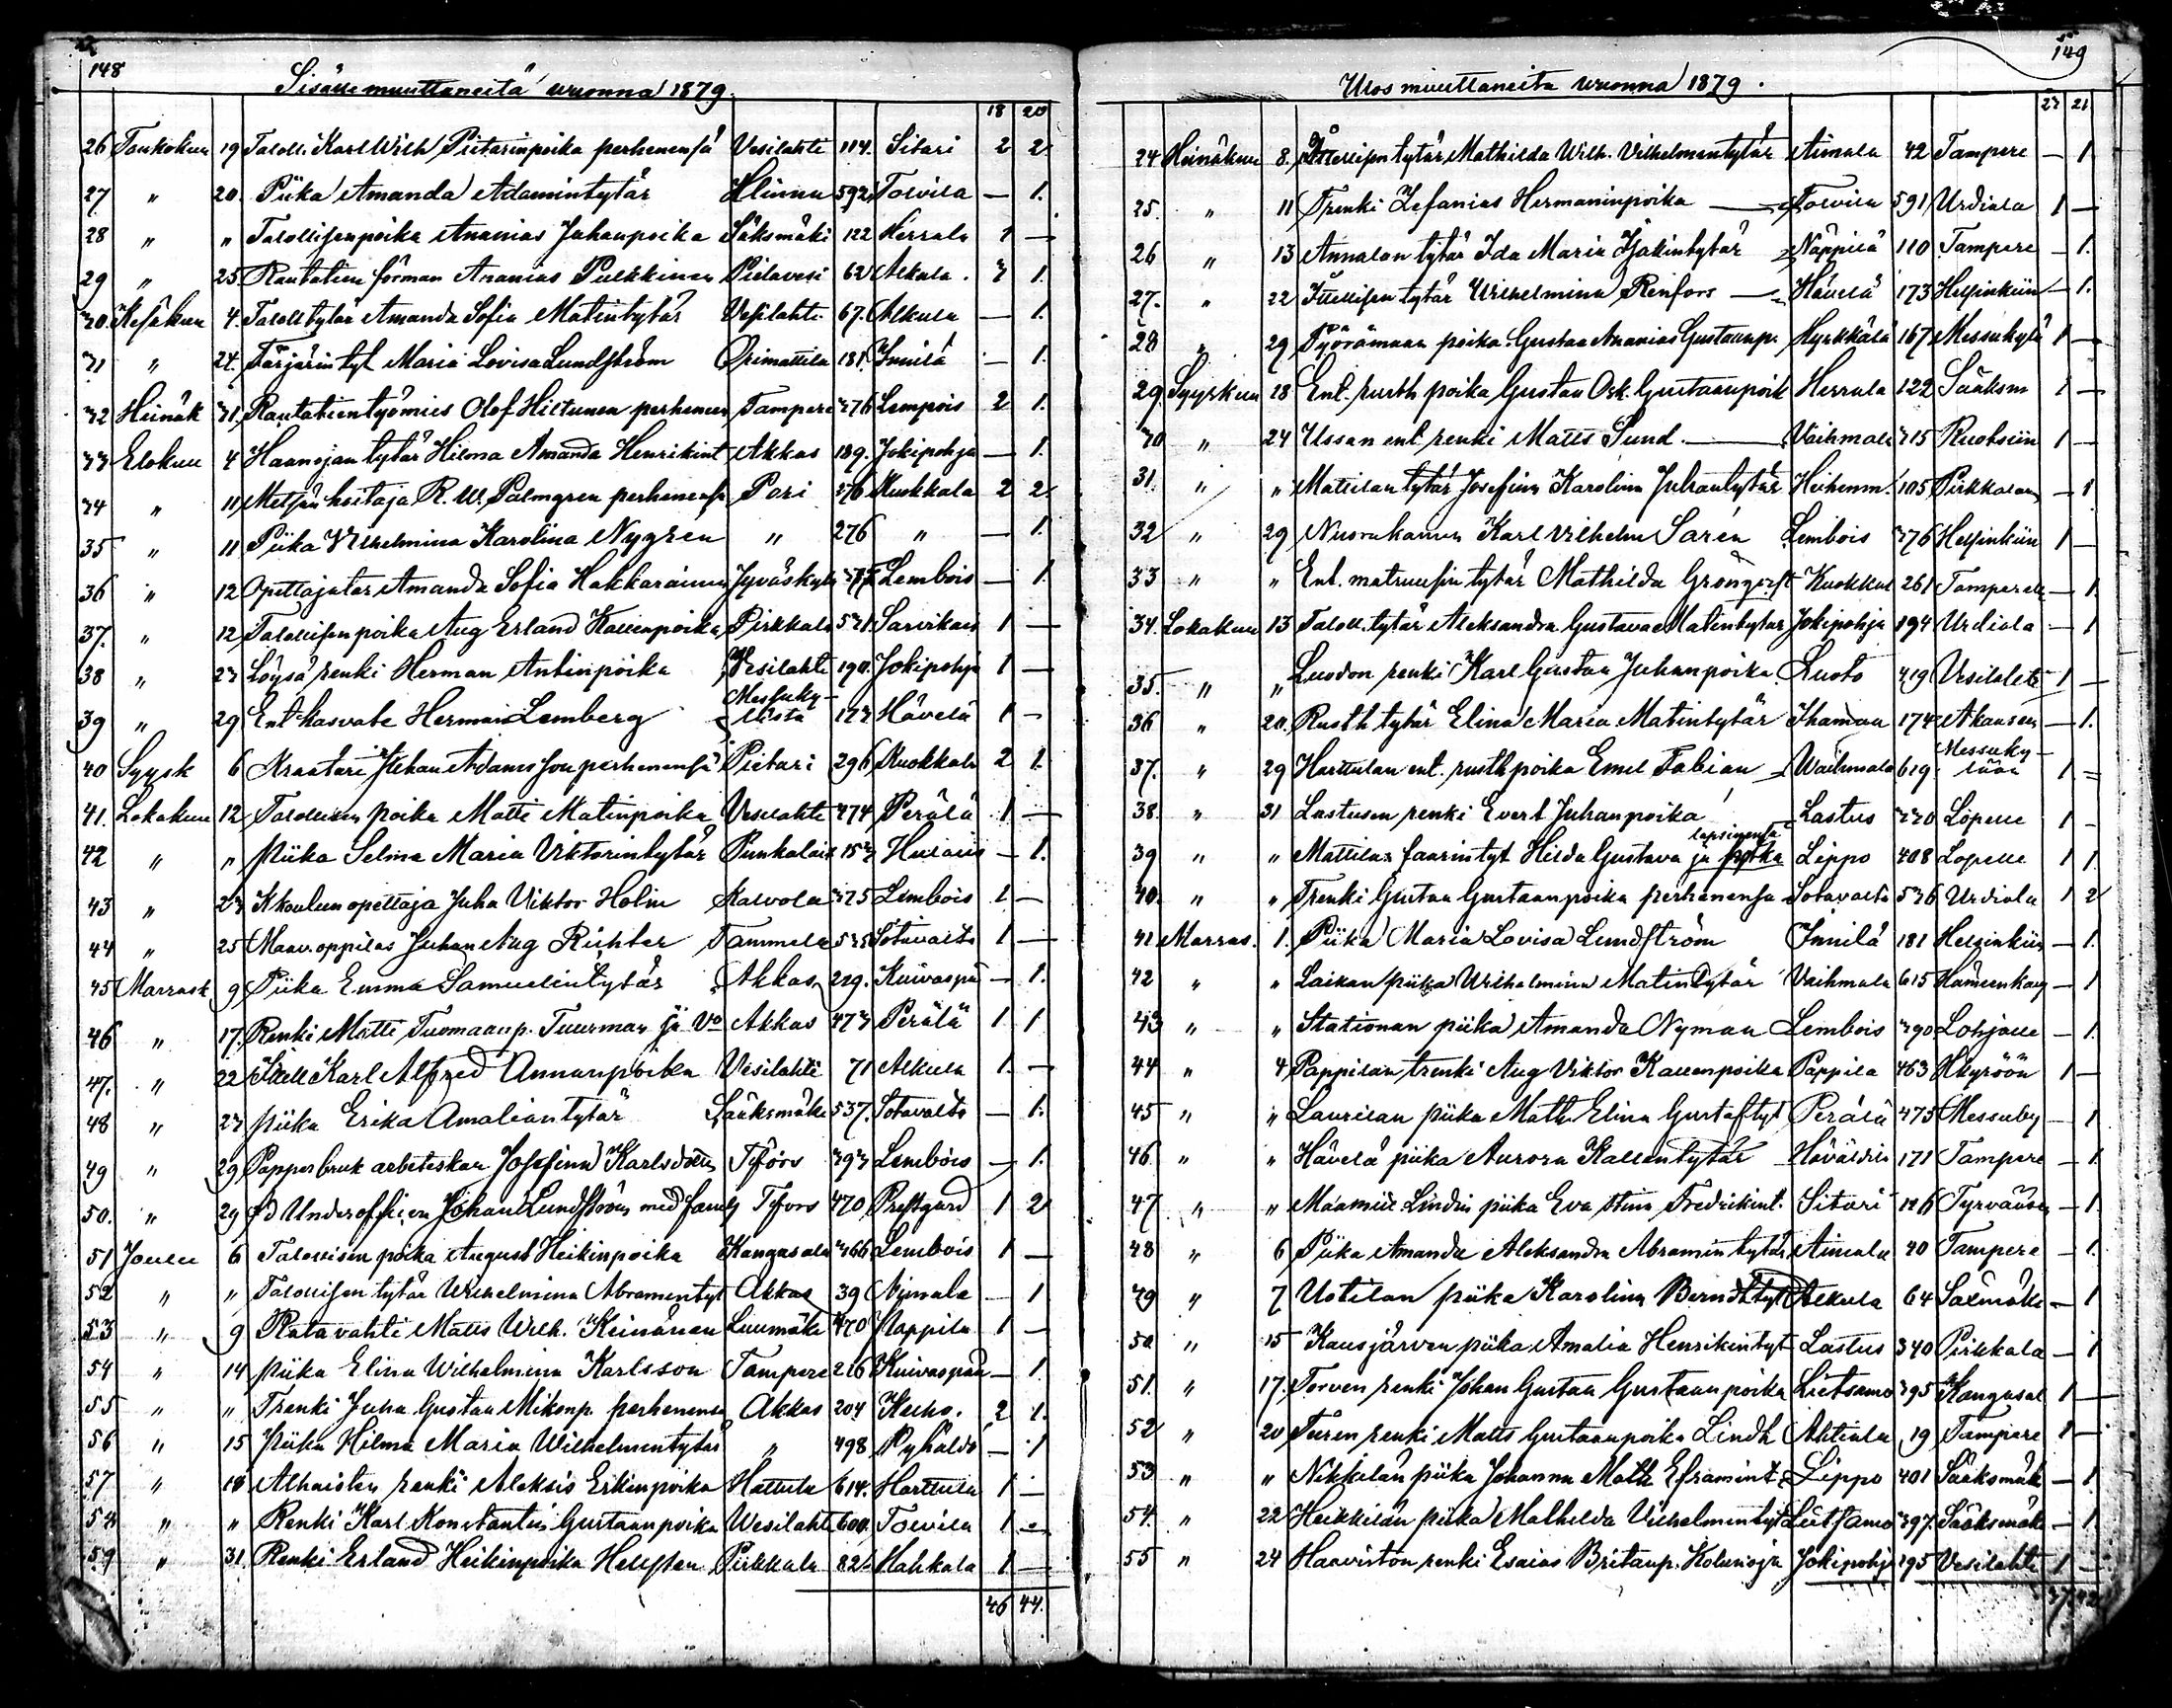 148
Sisälle muuttaneita wuonna 1879.
18 20
26 Toukokuu 19 Taloll. Karl Wilh Pietarinpoika perheneensä Vesilahti 114. Sitari 2 2
27 " 20. Piika Amanda Adamintytär 592 Toivila — 1.
28 " " Talollisenpoika Ananias Juhanpoika Sääksmäki 122 Herrala 1 —
29 " 25 Rautatien förman Ananias Pulkkinen Pielavesi 62 Alkula. 3 1.
30. Kesäkuu 4. Taloll tytär Amanda Sofia Matintytär Vesilahti 67. Alkula — 1.
31 " 24. Färjärin tyt Maria Lovisa Lundström Orimattila 181 Innilä — 1.
32 Heinäk 31. Rautatientyömies Olof Hiltunen perheneen Tampere 376 Lempois 2 1.
33 Elokuu 4 Haanojan tytär Hilma Amanda Henrikint Akkas 189. Jokipohja — 1.
34 " 11 Metsänhoitaja R. W. Palmgren perheneensä Pori 276 Kuokkala 2 2
35 " 11 Piika Wilhelmina Karolina Nygren " 276 " — 1.
36 " 12 Opettajatar Amanda Sofia Hakkarainen Jyväskylä 377 Lembois — 1.
37. " 12 Talollisen poika Aug Erland Kallenpoika Pirkkala 531. Sarvikais 1 —
38 " 23 Löysä renki Herman Antinpoika Vesilahti 190. Jokipohja 1 —
39 " 29 Ent kasvate Herman Lemberg Messuky-lästä 173 Hävelä 1 —
40 Syysk 6 Kraatari Johan Adamsson perheneensä Pietari 296 Kuokkala 2 1.
41. Lokakuu 12 Talollisen poika Matti Matinpoika Vesilahti 474 Perälä 1 —
42 " " Piika Selma Maria Viktorintytär Punkalait 153 — 1.
43 " 23 K koulun opettaja Juha Viktor Holm Kalvola 375 Lembois 1 —
44 " 25 Maav. oppilas Juhan Aug Richter Tammela 535 Sotavalta 1 —
45 Marrask 9 Piika Emma Samuelintytär Akkas 229. Kuivaspä — 1.
46 " 17. Renki Matti Tuomaanp. Tuurman ja Vo Akkas 473 Perälä 1 1
47. " 22 Itsell Karl Alfred Annanpoika Vesilahti 71 Alkula 1. —
48 " 23 piika Erika Amaliantytär Sääksmäki 537. Sotavalta — 1.
49 " 29 Papperbruk arbeterskan Josefina Karlsdotter Tyfors 393 Lembois — 1.
50. " 29 fd Underofficien Johan Lundström med famlj Tyfors 470 Prestgård 1 2
51 Joulu 6 Talollisen poika August Heikinpoika Kangasala 366 Lembois 1 —
52 " " Talollisen tytär Wilhelmina Abramintyt Akkas 39 — 1
53 " 9 Ratavahti Matts Wilh. Keinänen Luumäki 470 Pappila 1 —
54 " 14 piika Elina Wilhelmina Karlsson Tampere 226 Kuivaspää — 1.
55 " " Trenki Juha Gustaa Mikonp. perheneensä Akkas 204 Keiho. 2 1.
56 " 15 Piika Hilma Maria Wilhelmintytär " 498 Pyhältö — 1
57 " 18 Alhaisten renki Aleksis Erkinpoika Hattula 614. Harttula 1 —
58 " " Renki Karl Konstantin Gustaanpoika Wesilahti 600. Toivila 1 —
59 " 31. Renki Erland Heikinpoika Hellsten Pirkkala 82. Hahkala 1 —
46 44.
149
Ulos muuttaneita wuonna 1879.
23 21
24 Heinäkuu 8. Itsellisen tytär Mathilda Wilh. Vilhelmintytär Aimala 42 Tampere — 1
25. " 11 Trenki Zefanias Hermaninpoika — Toivila 591 Urdiala 1 —
26 " 13 Annalan tytär Ida Maria Isakintytär Näppilä 110 Tampere — 1.
27. " 22 Itsellisen tytär Wilhelmina Renfors — Hävelä 173 Helsinkiin — 1.
28 " 29 Pyörämaan poika Gustaa Ananias Gustaanpo Hyrkkälä 167 Messukylä 1 —
29. Syyskuu 18 Ent. rusth poika Gustaa Osk. Gustaanpoik Herrala 122 Sääksm 1 —
30 " 24 Ussan ent. renki Matts Sund — Vaihmala 315 Ruotsiin 1 —
31. " " Mattilan tytär Josefina Karolina Juhantytär 105 Pirkkalaan — 1
32 " 29 Karl Vilhelm Sarén Lembois 376 Helsinkiin 1 —
33 " " Ent. matruusin tytär Mathilda Grönqvist Kuokkal 261 Tampereelle — 1
34. Lokakuu 13 Taloll. tytär Aleksandra Gustava Matintytär Jokipohja 194 Urdiala — 1
35. " " Luodon renki Karl Gustaa Juhanpoika Luoto 419 Vesilahti 1 —
36 " 20. Rusth tytär Elina Maria Matintytär 174 Akaaseen — 1.
37. " 29 Harttulan ent. rusth poika Emil Fabian — Waihmala 619 Messuky-lään 1 —
38. " 31 Lastusen renki Evert Juhanpoika Lastus 330 Lopelle 1 —
39 " " Mattilan faarintyt Hilda Gustava ja poika lapsinensa Lippo 408 Lopelle 1 1
40. " " Trenki Gustaa Gustaanpoika perheneensä Sotavalta 536 Urdiala 1 2
41 Marras. 1. Piika Maria Lovisa Lundström Innilä 181 Helsinkiin — 1.
42 " " Laikan piika Wilhelmina Matintytär Vaihmala 615 Hämeenkang — 1
43 " " Stationan piika Amanda Nyman Lembois 390. Lohjalle — 1.
44 " 4 Pappilan trenki Aug Viktor Kallenpoika Pappila 463 Hkyröön 1 —
45 " " Laurilan piika Math Elina Gustaftyt Perälä 475 Messuby — 1
46 " " Hävelä piika Aurora Kallentytär 171 Tampere — 1.
47 " " Linden piika Eva Stina Fredrikint. Sitari 126 Tyrvään — 1.
48 " 6 Piika Amanda Aleksandra Abramintytär Aimala 40 Tampere — 1.
49 " 7 Uotilan piika Karolina Berndttyt Alkula 64 — 1
50 " 15 Kausjärven piika Amalia Henrikintyt Lastus 340 Pirkkala — 1
51. " 17. Torven renki Johan Gustaa Gustaanpoika Lietsamo 395 Kangasal 1 —
52 " 20 Turen renki Matts Gustaanpoika Lindh Ahtiala 19 Tampere 1 —
53 " " Nikkilän piika Johanna Math Eframint. Lippo 401 Sääksmäk — 1
54. " 22 Heikkilän piika Mathilda Vilhelmintyt Lietsamo 397. Sääksmäk — 1.
55 " 24 Haaviston renki Esaias Britanp. Jokipohj 195 Vesilahti 1 —
37 42